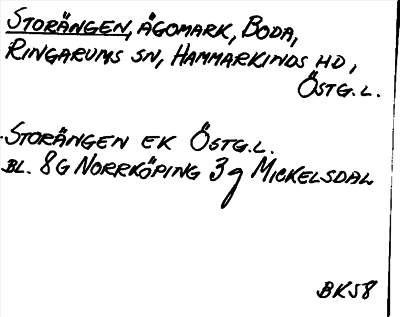 STORÄNGEN, ÄGOMARK, BODA,
RINGARUMS SN, HAMMARKINDS HD,
ÖSTG.L.
STORÄNGEN EK ÖSTG.L.
BL. 8G NORRKÖPING 3g MICKELSDAL
BKS8